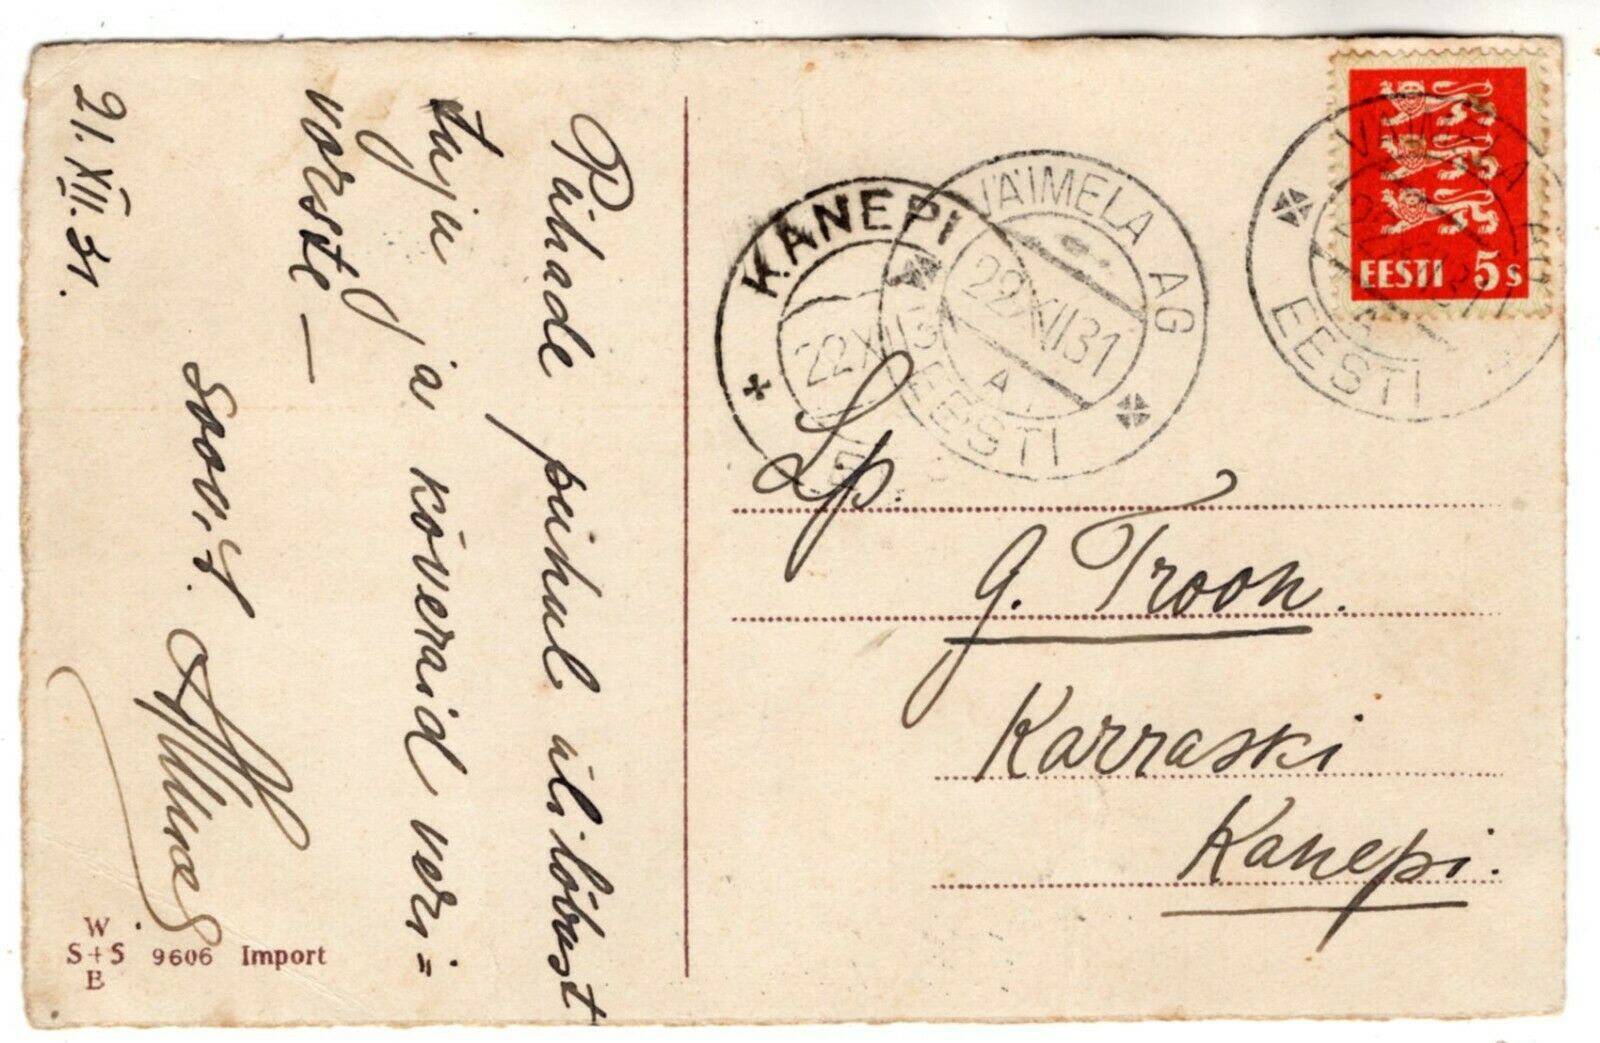 Pühade puhul ülilõbust
tuju ja kõveraid veri=
vorste —
Soov. t.
21. XII. 31.
W
S+S 9606 Import
B
KANEPI
22 XII 31
VÄIMELA AG
22 XII 31
A
EESTI
EESTI 5s
VÄIMELA AG
EESTI
A
Lp.
G. Troon.
Karraski
Kanepi.